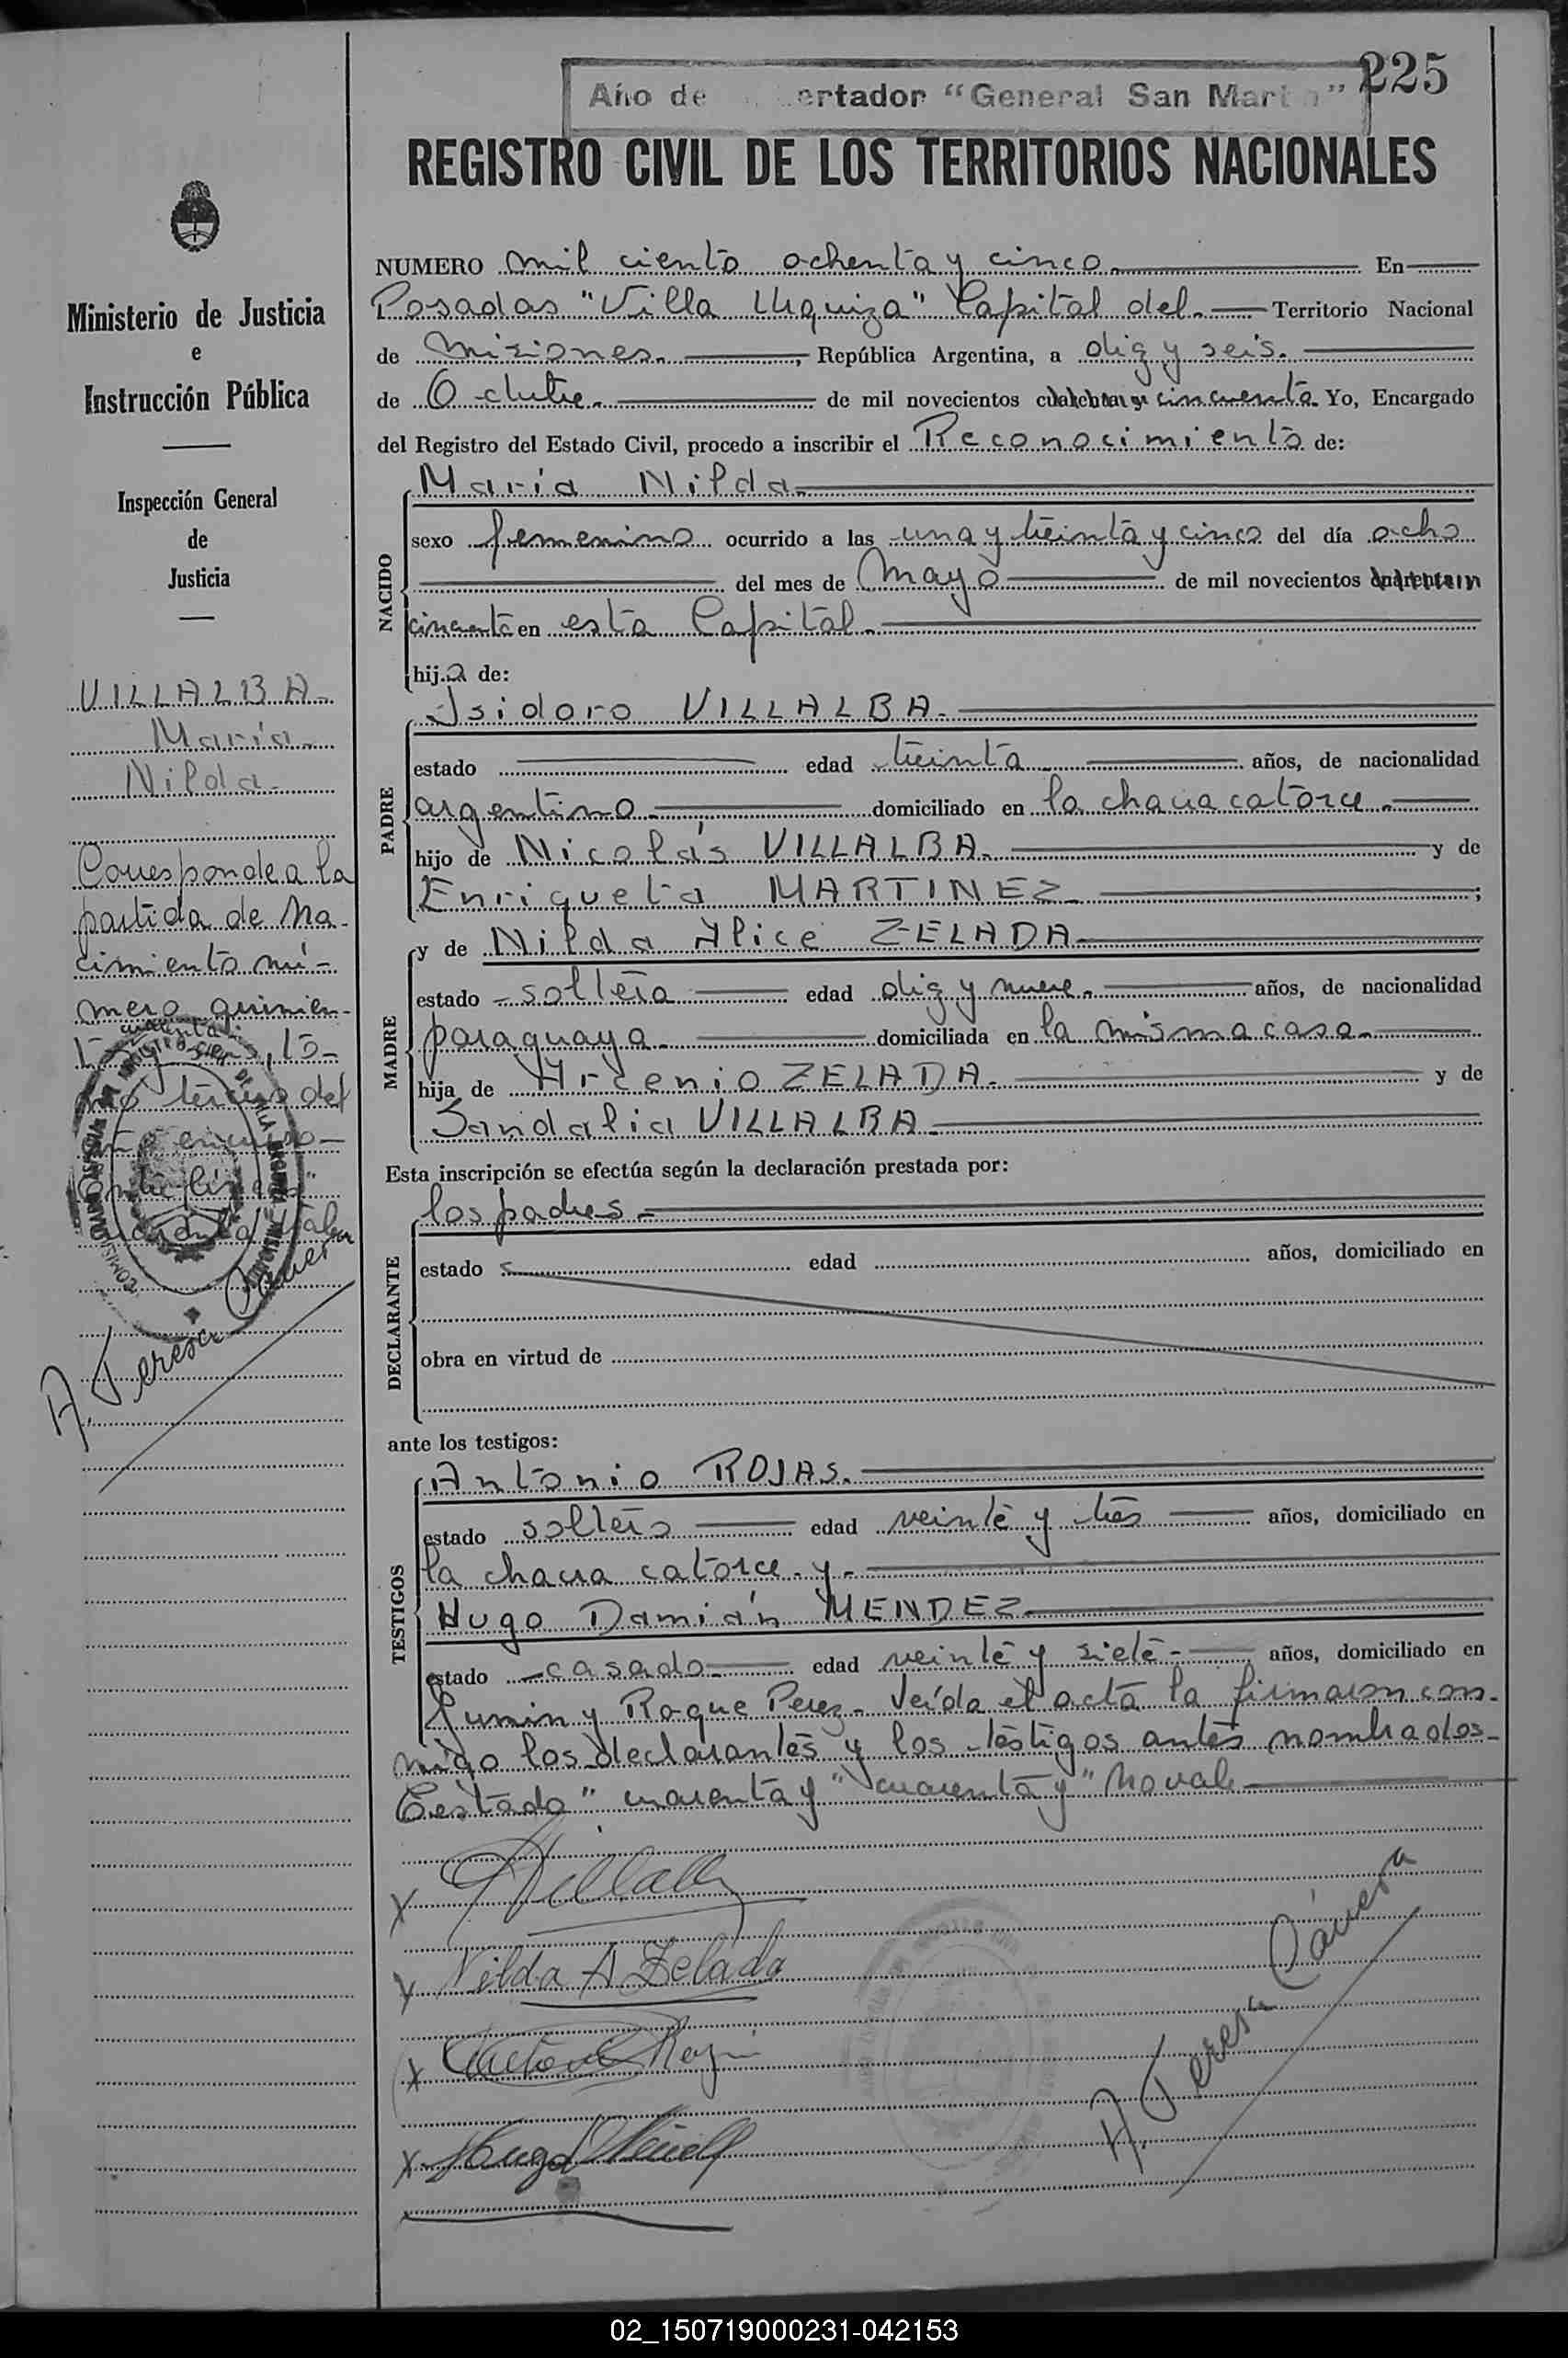 225
Año de ertador "General San Martín"
REGISTRO CIVIL DE LOS TERRITORIOS NACIONALES
Ministerio de Justicia
e
Instrucción Pública
Inspección General
de
Justicia
VILLALBA
María
Nilda
Corresponde a la
partida de na-
cimiento nú-
mero quinien-
to
tercero del
A. Teresa
NUMERO mil ciento ochenta y cinco En
Posadas "Villa Urquiza" Capital del Territorio Nacional
de Misiones, República Argentina, a diez y seis
de Octubre de mil novecientos cincuenta Yo, Encargado
del Registro del Estado Civil, procedo a inscribir el Reconocimiento de:
NACIDO
María Nilda
sexo femenino ocurrido a las una y treinta y cinco del día ocho
del mes de Mayo de mil novecientos
cincuenta en esta Capital
hija de:
PADRE
Isidoro VILLALBA
estado edad treinta años, de nacionalidad
argentino domiciliado en la chacra catorce
hijo de Nicolás VILLALBA y de
Enriqueta MARTINEZ;
MADRE
y de Nilda Alice ZELADA
estado soltera edad diez y nueve años, de nacionalidad
paraguaya domiciliada en la misma casa
hija de Arcenio ZELADA y de
Sandalia VILLALBA
Esta inscripción se efectúa según la declaración prestada por:
DECLARANTE
los padres
estado edad años, domiciliado en
obra en virtud de
ante los testigos:
TESTIGOS
Antonio ROJAS
estado soltero edad veinte y tres años, domiciliado en
la chacra catorce y
Hugo Damián MENDEZ
estado casado edad veinte y siete años, domiciliado en
Junin y Roque Perez. Leída el acta la firmaron con-
migo los declarantes y los testigos antes nombrados
Testado "cuarenta y" "cuarenta y" No vale
X Villalba
X Nilda A Zelada
X
X Hugo
A. Teresa Cávera
02_150719000231-042153